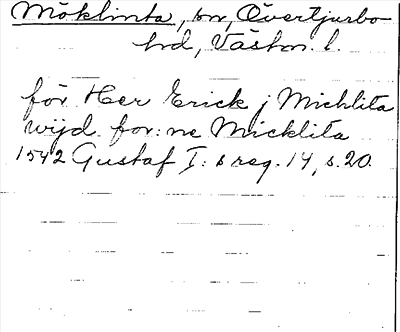 Möklinta, sn, Övertjurbo
hd, Västm. l.
för Her Erick j Michlita
wijd. for:ne Micklita
1542 Gustaf I:s reg. 14, s. 20.